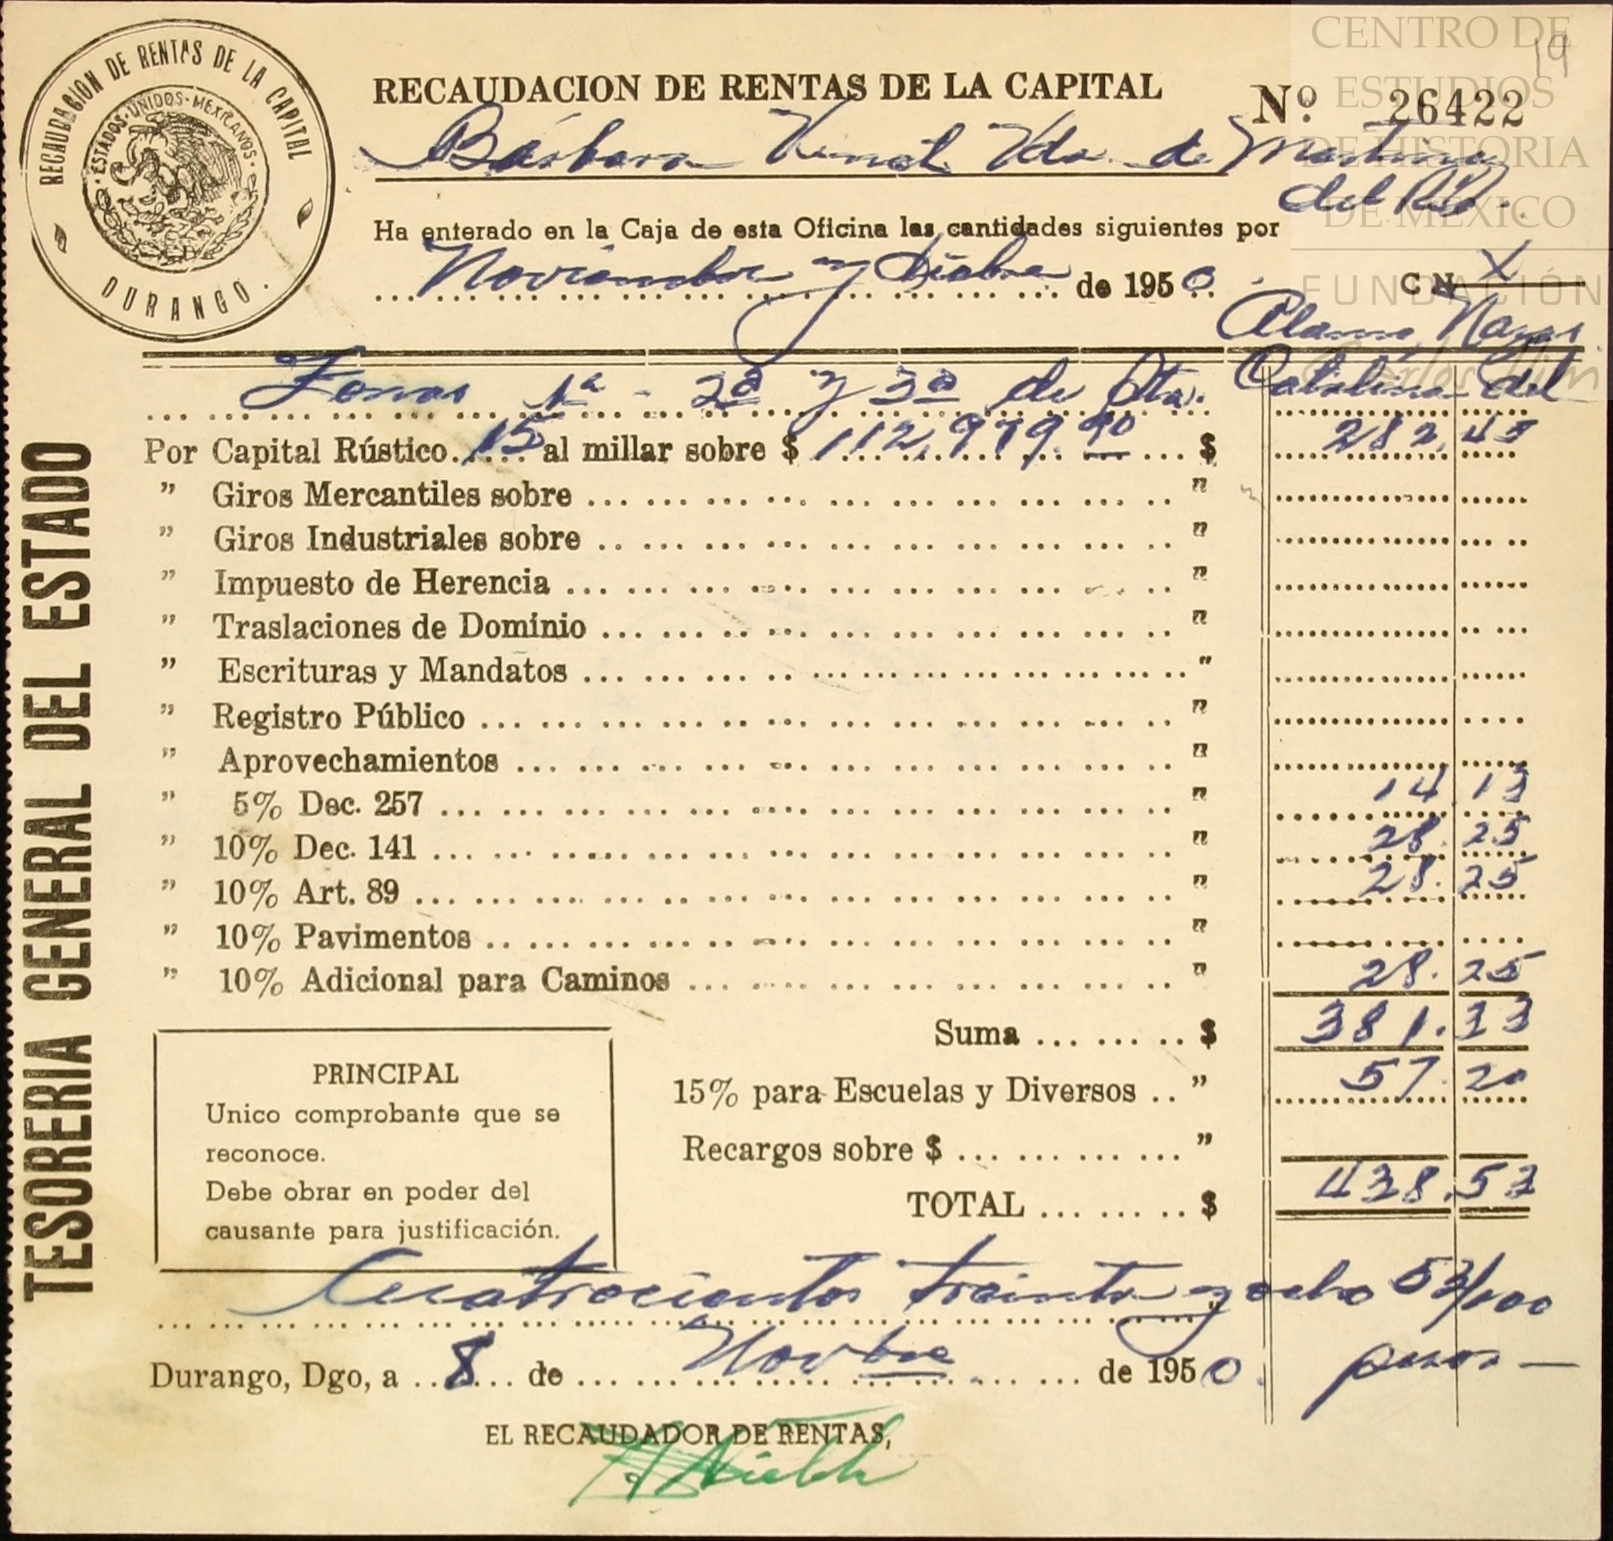 CENTRO DE
ESTUDIOS
DE HISTORIA
DE MÉXICO
FUNDACIÓN
Carlos Slim
19
RECAUDACION DE RENTAS DE LA CAPITAL
ESTADOS·UNIDOS·MEXICANOS
DURANGO.
RECAUDACION DE RENTAS DE LA CAPITAL
Nº 26422
Bárbara Vda. de Martínez
del Río.
Ha enterado en la Caja de esta Oficina las cantidades siguientes por
Noviembre y Dicbre de 1950.
C N X
Alamo, Navas
Catalina del
Zonas 1ª - 2ª y 3ª de
Por Capital Rústico 15 al millar sobre $ 112,979.90 $ 282.45
" Giros Mercantiles sobre "
" Giros Industriales sobre "
" Impuesto de Herencia "
" Traslaciones de Dominio "
" Escrituras y Mandatos "
" Registro Público "
" Aprovechamientos "
" 5% Dec. 257 " 14 13
" 10% Dec. 141 " 28.25
" 10% Art. 89 " 28.25
" 10% Pavimentos "
" 10% Adicional para Caminos " 28.25
Suma $ 381.33
15% para Escuelas y Diversos " 57.20
Recargos sobre $ "
TOTAL $ 438.53
PRINCIPAL
Unico comprobante que se
reconoce.
Debe obrar en poder del
causante para justificación.
Cuatrocientos treinta y ocho 53/100
pesos—
Durango, Dgo, a 8 de Novbre de 1950.
EL RECAUDADOR DE RENTAS,
TESORERIA GENERAL DEL ESTADO